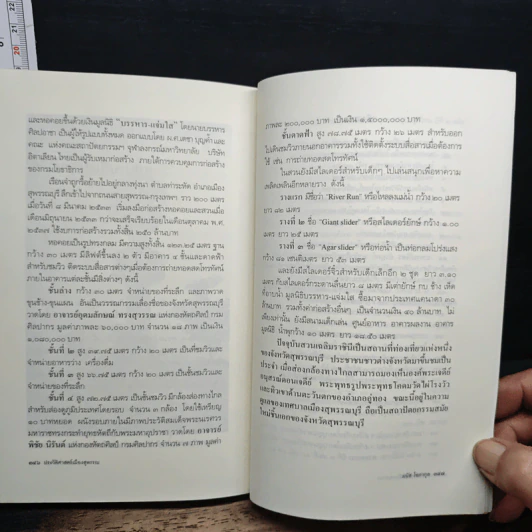 และหอคอยขึ้นด้วยเงินมูลนิธิ "บรรหาร-แจ่มใส" โดยนายบรรหาร
ศิลปอาชา เป็นผู้ให้รูปแบบทั้งหมด ออกแบบโดย ผ.ศ.เดชา บุญค้ำ และ
คณะ แห่งคณะสถาปัตยกรรมฯ จุฬาลงกรณ์มหาวิทยาลัย บริษัท
อิตาเลียน ไทยเป็นผู้รับเหมาก่อสร้าง ภายใต้การควบคุมการก่อสร้าง
ของกรมโยธาธิการ
เรือนจำถูกรื้อย้ายไปอยู่กลางทุ่งนา ตำบลท่าระหัด อำเภอเมือง
สุพรรณบุรี ลึกเข้าไปจากถนนสายสุพรรณ-กรุงเทพฯ ราว ๒๐๐ เมตร
เมื่อวันที่ ๑ มีนาคม ๒๕๓๓ เริ่มลงมือก่อสร้างหอคอยและสวนเมื่อ
เดือนมิถุนายน ๒๕๓๓ กว่าจะเสร็จเรียบร้อยในเดือนตุลาคม พ.ศ.
๒๕๓๗ ใช้งบการก่อสร้างรวมทั้งสิ้น ๒๕๐ ล้านบาท
หอคอยเป็นรูปทรงกลม มีความสูงทั้งสิ้น ๑๒๓.๒๕ เมตร ฐาน
กว้าง ๓๐ เมตร มีลิฟต์ขึ้นลง ๒ ตัว มีอาคาร ๔ ชั้นและดาดฟ้า
สำหรับชมวิว ติดระบบสื่อสารต่างๆเมื่อต้องการถ่ายทอดสดโทรทัศน์
ภายในอาคารแต่ละชั้นมีสิ่งต่างๆ ดังนี้
ชั้นล่าง กว้าง ๓๐ เมตร จำหน่ายของที่ระลึก และภาพวาด
ขุนช้าง-ขุนแผน อันเป็นวรรณกรรมเลื่องชื่อของจังหวัดสุพรรณบุรี
วาดโดย อาจารย์อุดมลักษณ์ ทรงสุวรรณ แห่งกองหัตถศิลป์ กรม
ศิลปากร มูลค่าภาพละ ๖๐,๐๐๐ บาท จำนวน ๑๘ ภาพ เป็นเงิน
๑,๐๘๐,๐๐๐ บาท
ชั้นที่ ๒ สูง ๓๓.๗๕ เมตร กว้าง ๒๐ เมตร เป็นที่ชมวิวและ
จำหน่ายอาหารว่าง เครื่องดื่ม
ชั้นที่ ๓ สูง ๖๖.๗๕ เมตร กว้าง ๒๐ เมตร เป็นชั้นชมวิวและ
จำหน่ายของที่ระลึก
ชั้นที่ ๔ สูง ๗๒.๗๕ เมตร เป็นชั้นชมวิว มีกล้องส่องทางไกล
สำหรับส่องดูภูมิประเทศโดยรอบ จำนวน ๓ กล้อง โดยใช้เหรียญ
๑๐ บาทหยอด ผนังรอบภายในมีภาพประวัติสมเด็จพระนเรศวร
มหาราชทรงกระทำยุทธหัตถีกับพระมหาอุปราชา วาดโดย อาจารย์
พิชัย นิรันต์ แห่งกองหัตถศิลป์ กรมศิลปากร จำนวน ๗ ภาพ มูลค่า
ประวัติศาสตร์เมืองสุพรรณ
ภาพละ ๒๐๐,๐๐๐ บาท เป็นเงิน ๑,๔๐๐,๐๐๐ บาท
ชั้นดาดฟ้า สูง ๗๘.๗๕ เมตร กว้าง ๒๖ เมตร สำหรับออก
ไปเดินชมวิวภายนอกอาคารรวมทั้งใช้ติดตั้งระบบสื่อสารเมื่อต้องการ
ใช้ เช่น การถ่ายทอดสดโทรทัศน์
ในสวนยังมีสไลเดอร์สำหรับเด็กๆ ไปเล่นสนุกเพื่อหาความ
เพลิดเพลินอีกหลายราง ดังนี้
รางแรก มีชื่อว่า "River Run" หรือไหลลงแม่น้ำ กว้าง ๒๐ เมตร
ยาว ๘๒ เมตร
ราง ที่ ๒ ชื่อ "Giant slider" หรือสไลเดอร์ยักษ์ กว้าง ๑.๐๐
เมตร ยาว ๒๕ เมตร
ราง ที่ ๓ ชื่อ "Agar slider" หรือท่อน้ำ เป็นช่องกลมโปร่งแสง
กว้าง ๘๑ เซนติเมตร ยาว ๕๓ เมตร
และยังมีสไลเดอร์จิ๋วสำหรับเด็กเล็กอีก ๒ ชุด ยาว ๓.๑๐
เมตร กับสไลเดอร์กระดานลื่นยาว ๘ เมตร มีเต่ายักษ์ กบ ช้าง เห็ด
ซื้อมาจากประเทศแคนาดา ๓๐
ล้านบาท รวมทั้งค่าก่อสร้างอื่นๆ เป็นจำนวนเงิน ๔๐ ล้านบาท, ไม่
เพียงเท่านั้น ยังมีสนามเด็กเล่น ศูนย์อาหาร อาคารผลงาน อาคาร
มูลนิธิ น้ำพุกว้าง ๑๐ เมตร ยาว ๑๘.๕๐ เมตร
ปัจจุบันสวนเฉลิมภัทรราชินีเป็นสถานที่ท่องเที่ยวแห่งหนึ่ง
ของจังหวัดสุพรรณบุรี ประชาชนชาวต่างจังหวัดมาขึ้นชมเป็น
ประจำ เมื่อส่องกล้องทางไกลสามารถมองเห็นองค์พระเจดีย์
อนุสรณ์ดอนเจดีย์ พระพุทธรูปพระพุทธโคดมวัดไผ่โรงวัว
และทิวเขาด้านตะวันตกของอำเภออู่ทอง ขณะนี้อยู่ในความ
ดูแลของเทศบาลเมืองสุพรรณบุรี ถือเป็นสถาปัตยกรรมสมัย
ใหม่ชิ้นเอกของจังหวัดสุพรรณบุรี